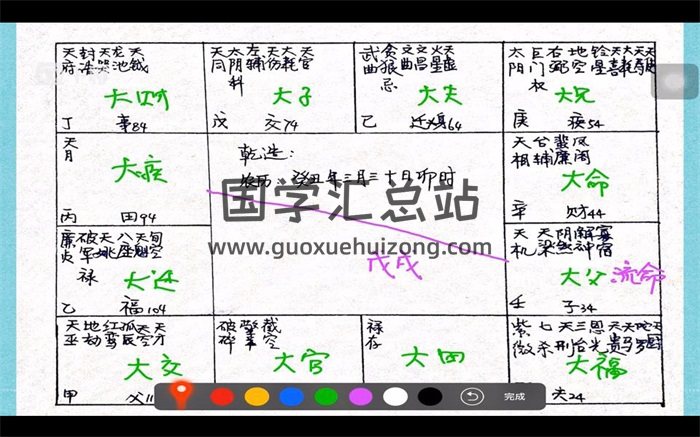 天封天龙天
府诰哭池钺
大财
丁 事84
天太左天大天
同阴辅伤耗官
科
大子
戊 交74
武贪文文火天
曲狼曲昌星
忌
大夫
己 迁 64
太巨右地铃天大天
阳门弼空星喜耗
权
大兄
庚 疾54
天
月
大疾
丙 田94
乾造:
农历:癸丑年三月三十日卯时
天台蜚凤
相辅廉阁
大命
辛 财44
国学汇总站
www.guoxuehuizong.com
廉破天八天旬
贞军姚座 空
禄
大迁
乙 福104
戊戌
天天阴 寡
机梁煞神宿
大父 流命
壬 子34
天地红孤天天
巫劫鸾辰空才
大交
甲 父11
破擎截
碎羊空
大官
禄
存
大田
紫七天三恩天天陀天
微杀刑台光贵马罗
大福
夫24
完成